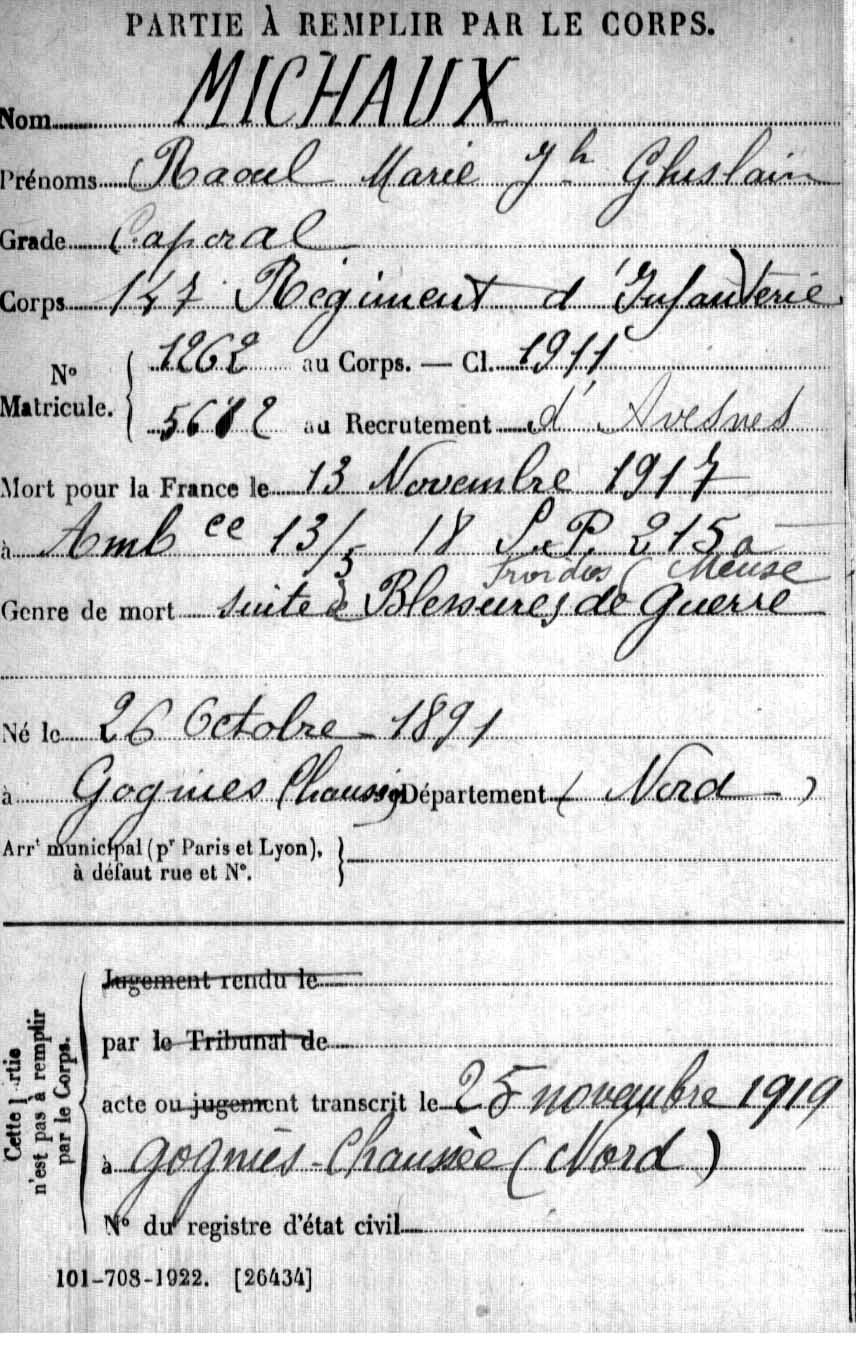 PARTIE À REMPLIR PAR LE CORPS.
Nom MICHAUX
Prénoms Raoul Marie Jh Ghislain
Grade Caporal
Corps 147 Régiment d'Infanterie
N° Matricule. 1262 au Corps. — Cl. 1911
5612 au Recrutement d'Avesnes
Mort pour la France le 13 Novembre 1917
à Ambce 13/5 18 S.P. 215
Froidos (Meuse
Genre de mort suite de Blessures de Guerre
Né le 26 Octobre 1891
à Gognies Chaussée Département (Nord)
Arrt municipal (pr Paris et Lyon),
à défaut rue et N°.
Cette partie n'est pas à remplir par le Corps.
Jugement rendu le
par le Tribunal de
acte ou jugement transcrit le 25 novembre 1919
à gognies-Chaussée (Nord)
N° du registre d'état civil
101-708-1922. [26434]